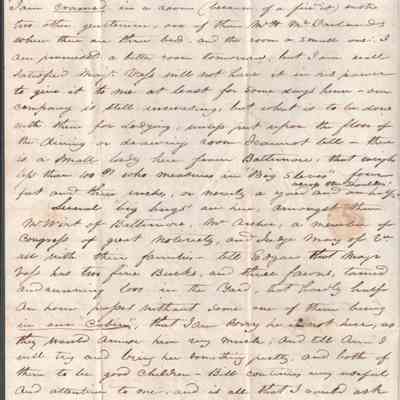 I am crammed in a room (because of a friend), with
two other gentlemen, one of them Mr. W. McFarland,
where there are three beds, and the room a small one. I
am promised a better room tomorrow, but I am well
satisfied Majr. Vass will not have it in his power
to give it to me at least for some days hence - our
company is still increasing, but what is to be done
with them for Lodging, unless put upon the floor of
the dining or drawing room I cannot tell - there
is a small lady here from Baltimore, that weighs
less than 100 lb who measures in "Big Sleeves" four
across the shoulders
feet and three inches, or nearly a yard and
Several big bugs are here, amongst them
Mr Wirt of Baltimore, Mr Archer, a member of
Congress of great notoriety, and Judge May of Va
all with their families - tell Edgar that Majr
Vass has two fine Bucks, and three fawns, tamed
and running loose in the Yard, but hardly half
an hour, passes without some one of them being
in our Cabin, that I am sorry he is not here, as
they would amuse him very much, and tell Ann I
will try and bring her something pretty, and both of
them to be good Children - Bill continues very useful
and attentive to me, and is all that I could ask